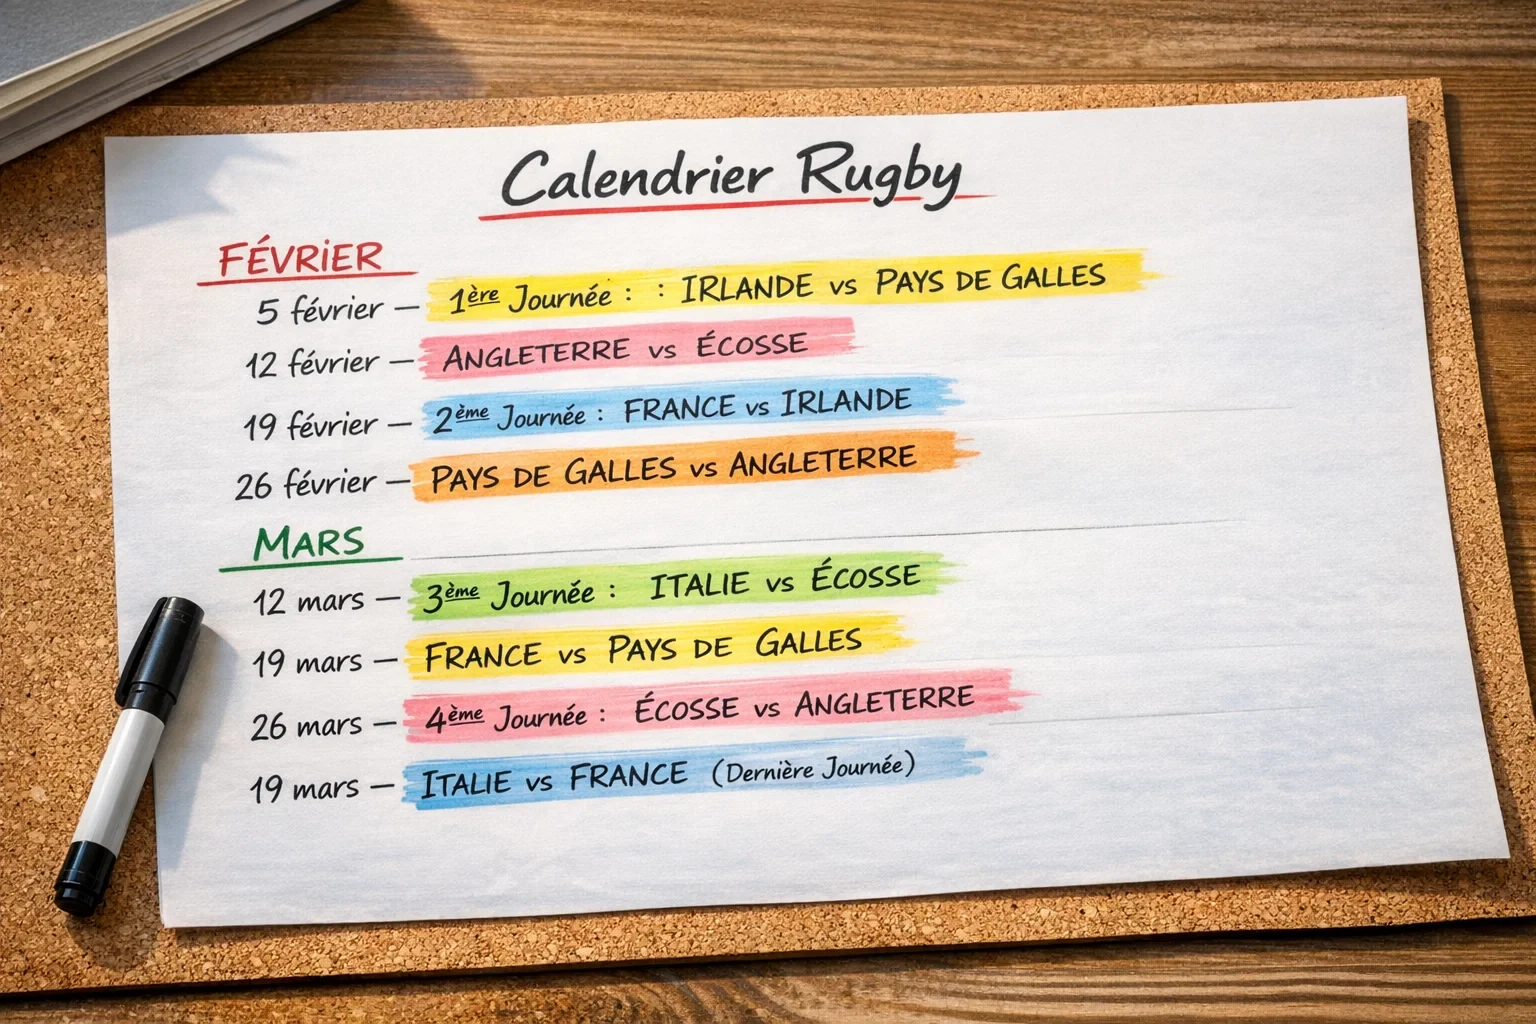 Calendrier Rugby
FÉVRIER
5 février — 1ère Journée : : IRLANDE vs PAYS DE GALLES
12 février — ANGLETERRE vs ÉCOSSE
19 février — 2ème Journée : FRANCE vs IRLANDE
26 février — PAYS DE GALLES vs ANGLETERRE
MARS
12 mars — 3ème Journée : ITALIE vs ÉCOSSE
19 mars — FRANCE vs PAYS DE GALLES
26 mars — 4ème Journée : ÉCOSSE vs ANGLETERRE
19 mars — ITALIE vs FRANCE (Dernière Journée)